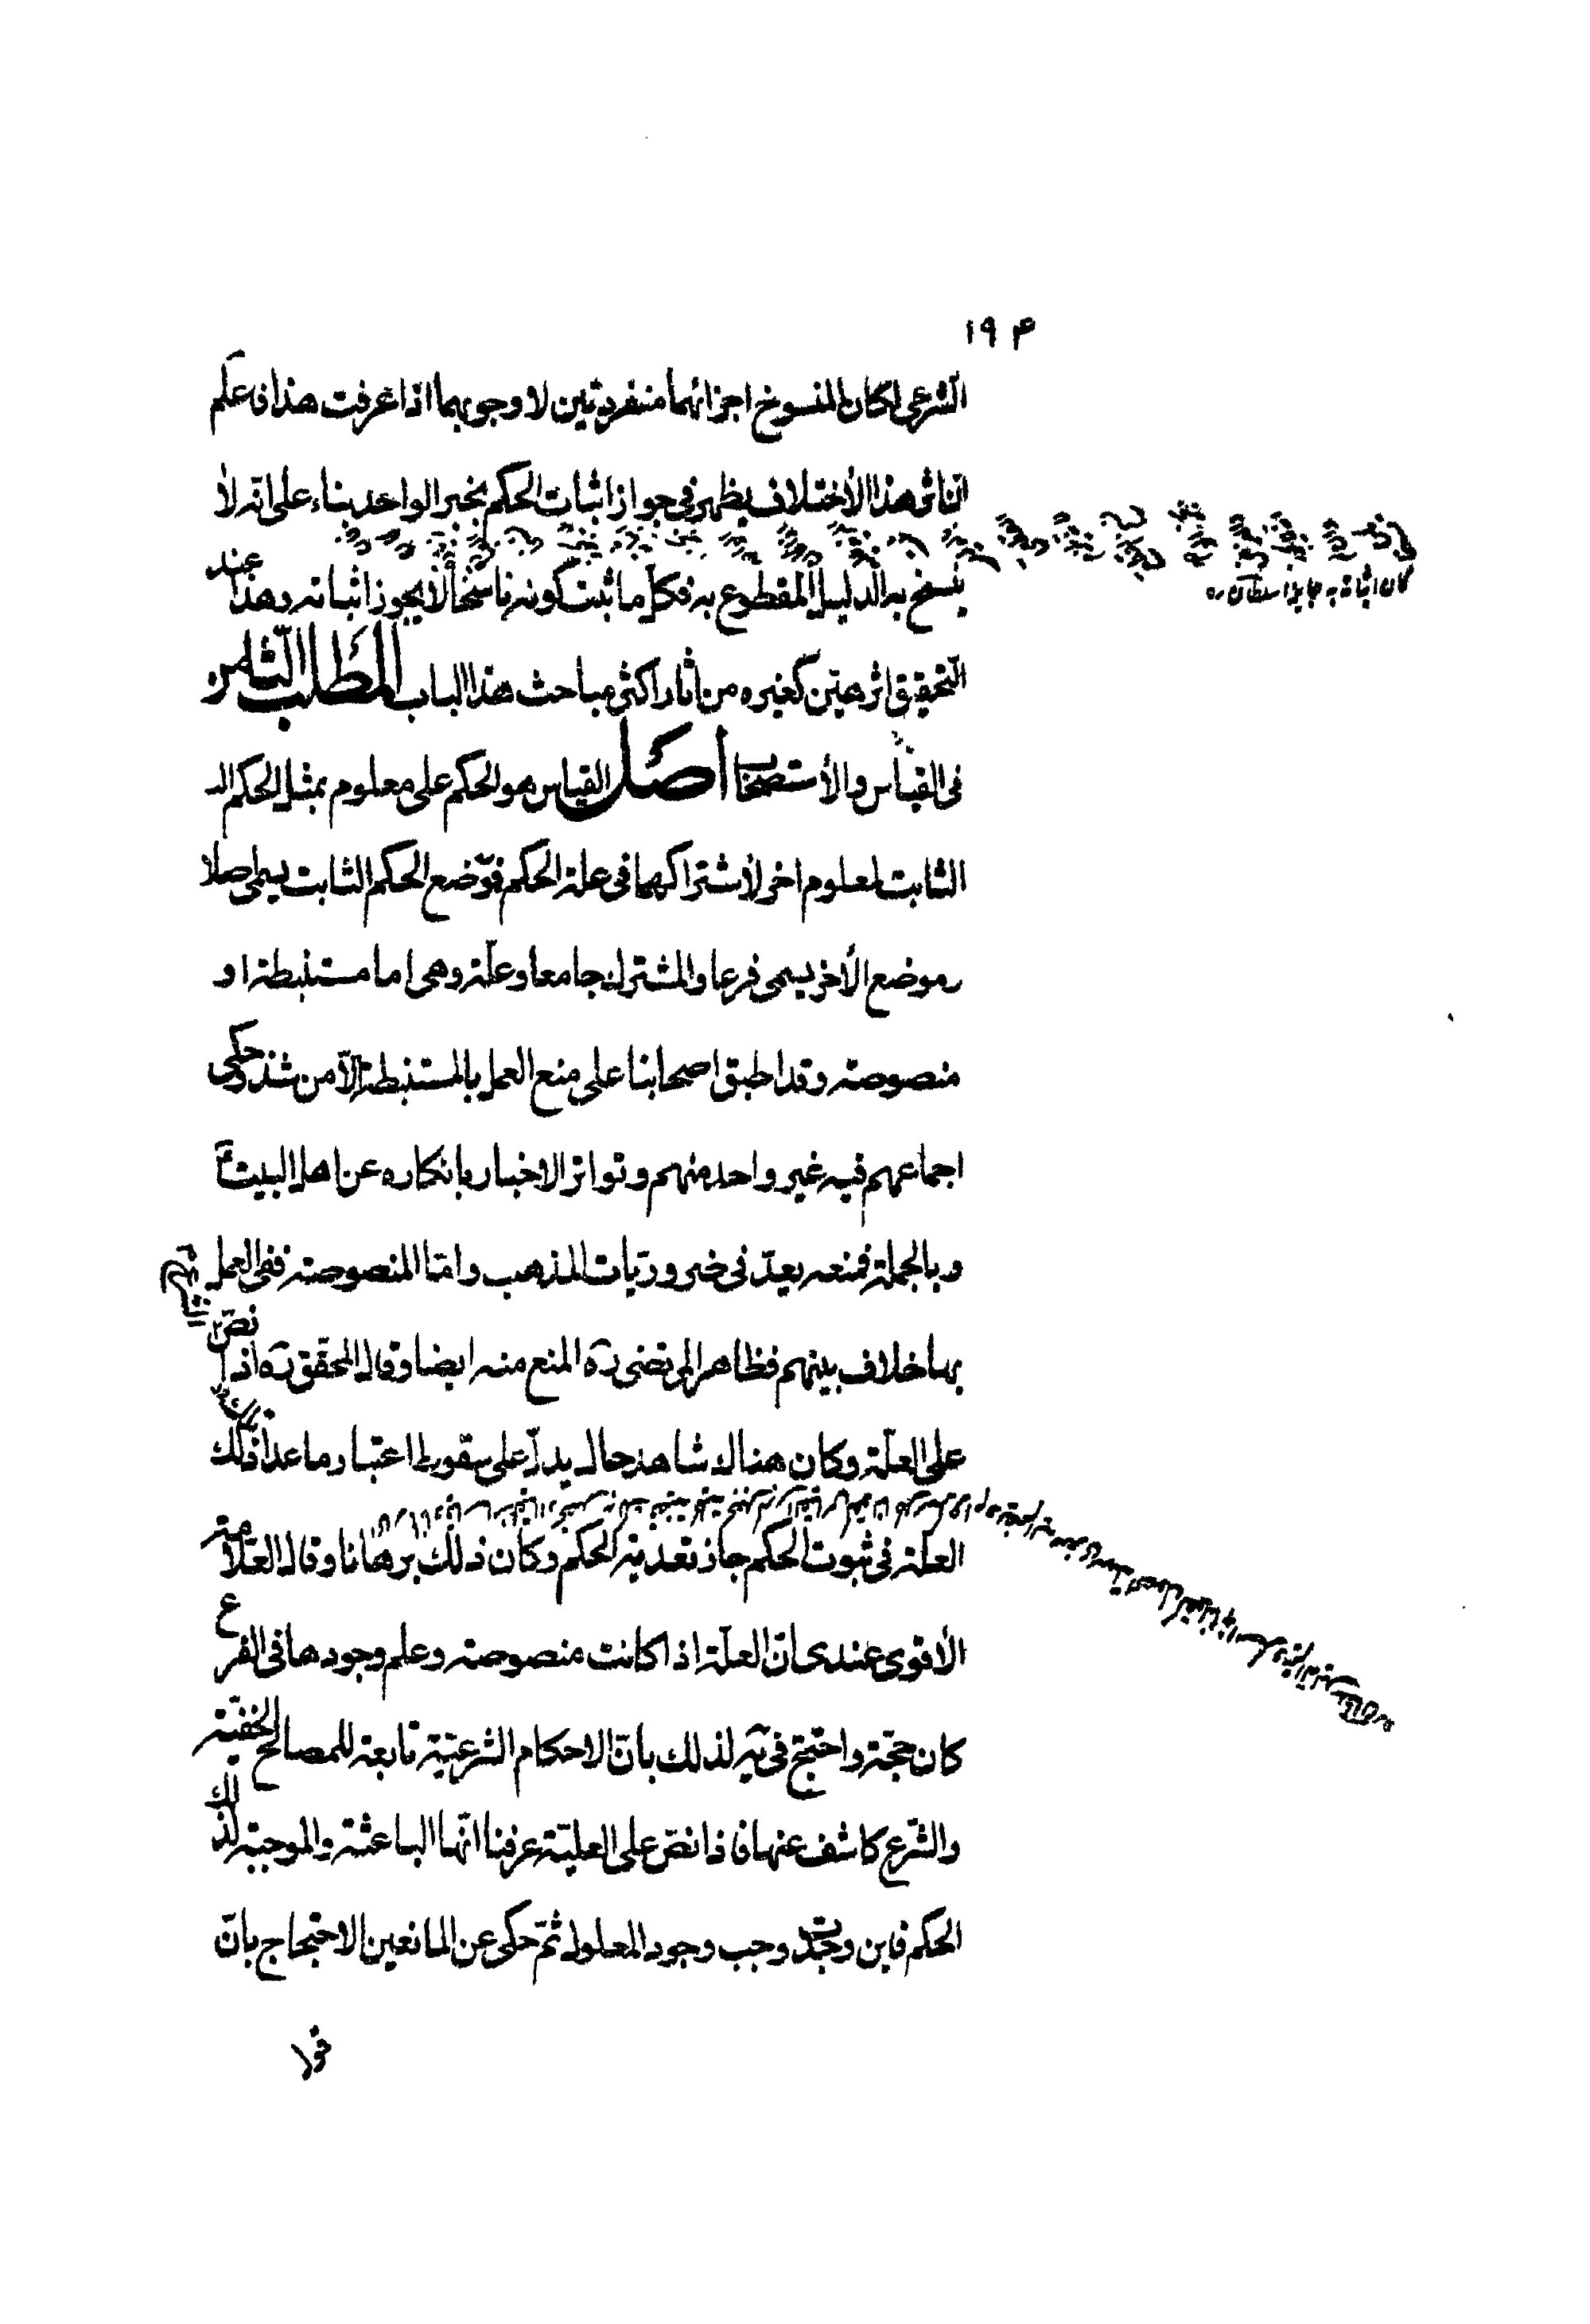 ۱۹۴
الشرعى لكان المنسوخ اجزائهما منفردتين لا وجوبهما اذا عرفت هذا فاعلم
ان اثر هذا الأختلاف يظهر فى جواز اثبات الحكم بخبر الواحد بناء على انّه لا
ينسخ به الدليل المقطوع به فكل ما ثبت كونه ناسخا لا يجوز اثباته وهذا عند
التحقيق اثر هيّن كغيره من اثار اكثر مباحث هذا الباب المطلب الثامن
فى القياس والأستصحاب أصل القياس هو الحكم على معلوم بمثل الحكم الد
الثابت لمعلوم اخر لأشتراكهما فى علة الحكم فموضع الحكم الثابت يسمى اصلا
وموضع الأخر يسمى فرعا والمشترك جامعا وعلّة وهى اما مستنبطة او
منصوصة وقد اطبق اصحابنا على منع العمل بالمستنبطة الّا من شذ وحكى
اجماعهم فيه غير واحد منهم وتواتر الاخبار بانكاره عن اهل البيت ع
وبالجملة فمنعه يعدّ فى ضروريّات المذهب وامّا المنصوصة ففى العمل
بها خلاف بينهم فظاهر المرتضى ره المنع منه ايضا وقال المحقق ره اذا نصّ
على العلّة وكان هناك شاهد حال يدلّ على سقوط اعتبار ما عدا ذلك
العلة فى ثبوت الحكم جاز تعدية الحكم وكان ذلك برهانا وقال العلّامة
الأقوى عندى انّ العلّة اذا كانت منصوصة وعلم وجودها فى الفرع
كان حجّة واحتج فى يه لذلك بانّ الاحكام الشرعيّة تابعة للمصالح الخفيّة
والشّرع كاشف عنها فاذا نصّ على العليّة عرفنا انّها الباعثة والموجبة لذلك
الحكم فاين وجدت وجب وجود المعلول ثمّ حكى عن المانعين الاحتجاج بانّ